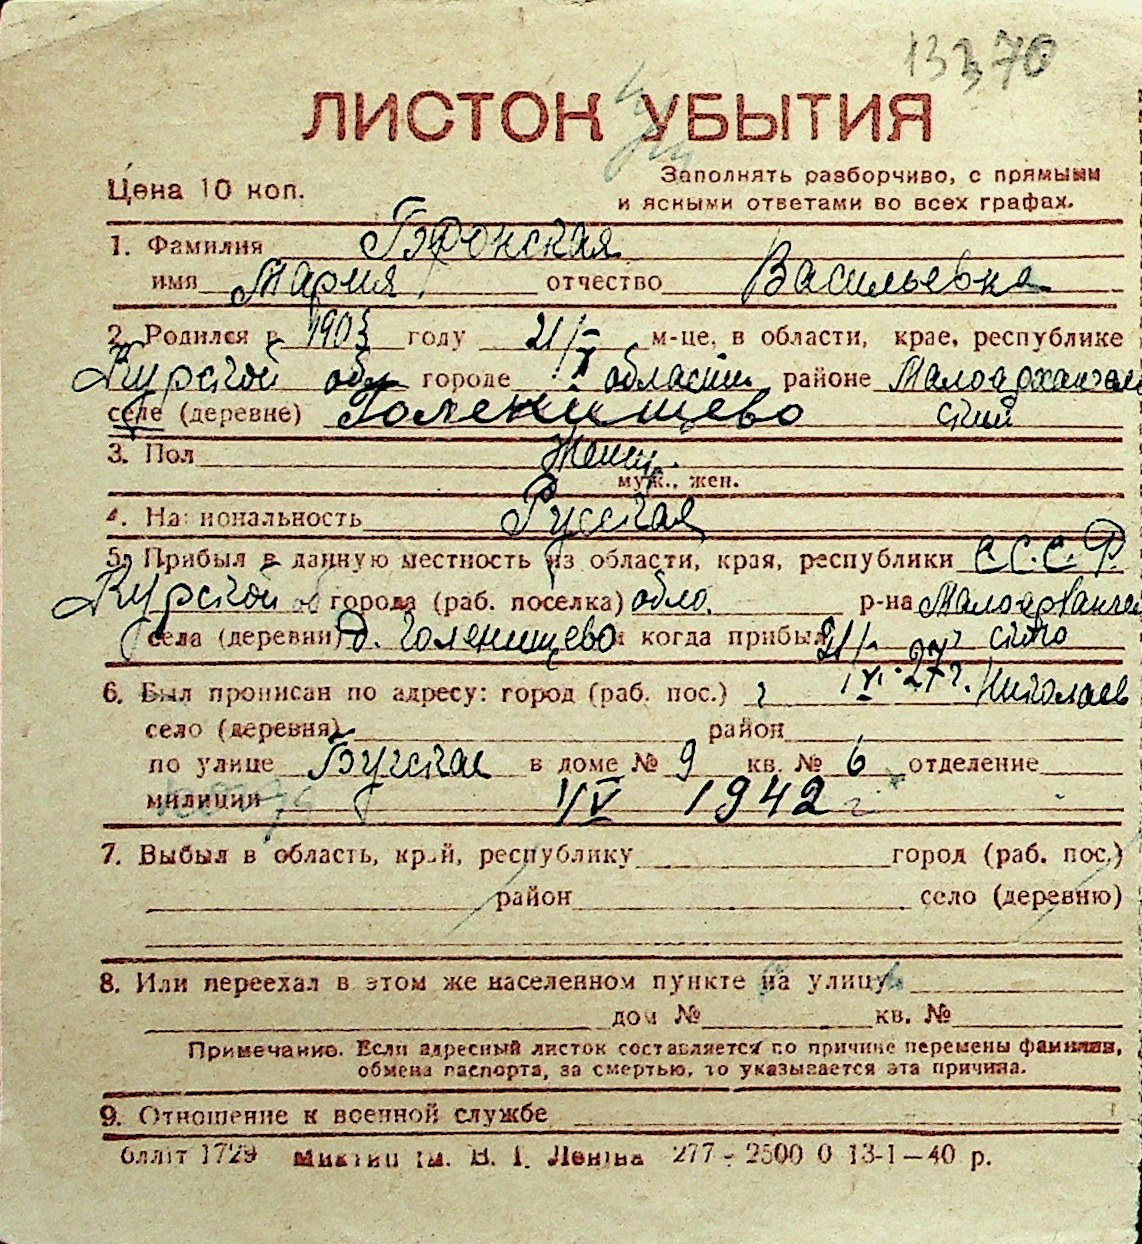 13270
ЛИСТОК УБЫТИЯ
Цена 10 коп.
Заполнять разборчиво, с прямыми
и ясными ответами во всех графах.
1. Фамилия
имя Мария отчество Васильевна
2. Родился в 1903 году 21/ м-це, в области, крае, республике
Курской обл городе области районе Малоархангель
селе (деревне) Голенищево ский
3. Пол Женщ.
муж., жен.
4. Национальность Русская
5. Прибыл в данную местность из области, края, республики С.С.С.Р.
Курской об города (раб. поселка) р-на Малоархангель
села (деревни) д. Голенищево и когда прибыл
6. Был прописан по адресу: город (раб. пос.) г Николаев
село (деревня) район
по улице Бугская в доме № 9 кв. № 6 отделение
милиции 1/V 1942 г
7. Выбыл в область, край, республику город (раб. пос.)
район село (деревню)
8. Или переехал в этом же населенном пункте на улицу
дом № кв. №
Примечание. Если адресный листок составляется по причине перемены фамилии,
обмена паспорта, за смертью, то указывается эта причина.
9. Отношение к военной службе
1729 ім. В. І. Леніна 277 - 2500 0 13-1—40 р.